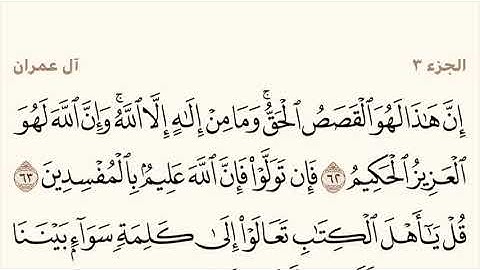 الجزء ٣
آل عمران
إِنَّ هَـٰذَا لَهُوَ ٱلۡقَصَصُ ٱلۡحَقُّۚ وَمَا مِنۡ إِلَـٰهٍ إِلَّا ٱللَّهُۚ وَإِنَّ ٱللَّهَ لَهُوَ
ٱلۡعَزِيزُ ٱلۡحَكِيمُ ٦٢ فَإِن تَوَلَّوۡاْ فَإِنَّ ٱللَّهَ عَلِيمُۢ بِٱلۡمُفۡسِدِينَ ٦٣
قُلۡ يَـٰٓأَهۡلَ ٱلۡكِتَـٰبِ تَعَالَوۡاْ إِلَىٰ كَلِمَةٖ سَوَآءِۭ بَيۡنَنَا